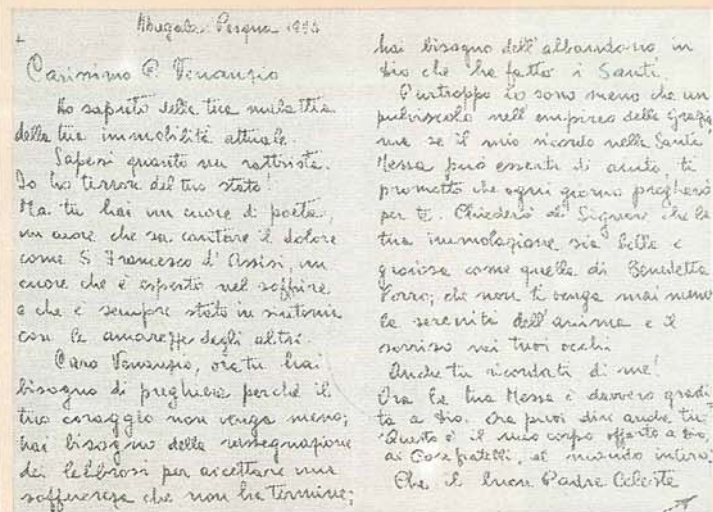 Abugala. Pasqua 1993
Carissimo P. Venanzio
Ho saputo della tua malattia
della tua immobilità attuale.
Sapessi quanto mi rattrista.
Io ho terrore del tuo stato!
Ma tu hai un cuore di poeta,
un cuore che sa cantare il dolore
come S Francesco d'Assisi, un
cuore che è esperto nel soffrire
e che è sempre stato in sintonia
con le amarezze degli altri.
Caro Venanzio, ora tu hai
bisogno di preghiera perché il
tuo coraggio non venga meno;
hai bisogno della rassegnazione
dei lebbrosi per accettare una
sofferenza che non ha termine;
hai bisogno dell'abbandono in
Dio che ha fatto i Santi.
Purtroppo io sono meno che un
pulviscolo nell'empireo della Grazia
ma se il mio ricordo nella Santa
Messa può esserti di aiuto, ti
prometto che ogni giorno pregherò
per te. Chiederò al Signore che la
tua immolazione sia bella e
gioiosa come quella di Benedetta
Porro; che non ti venga mai meno
la serenità dell'anima e il
sorriso nei tuoi occhi
Anche tu ricordati di me!
Ora la tua Messa è davvero gradi-
ta a Dio. Ora puoi dire anche tu
"Questo è il mio corpo offerto a Dio,
ai fratelli, al mondo intero."
Che il buon Padre Celeste